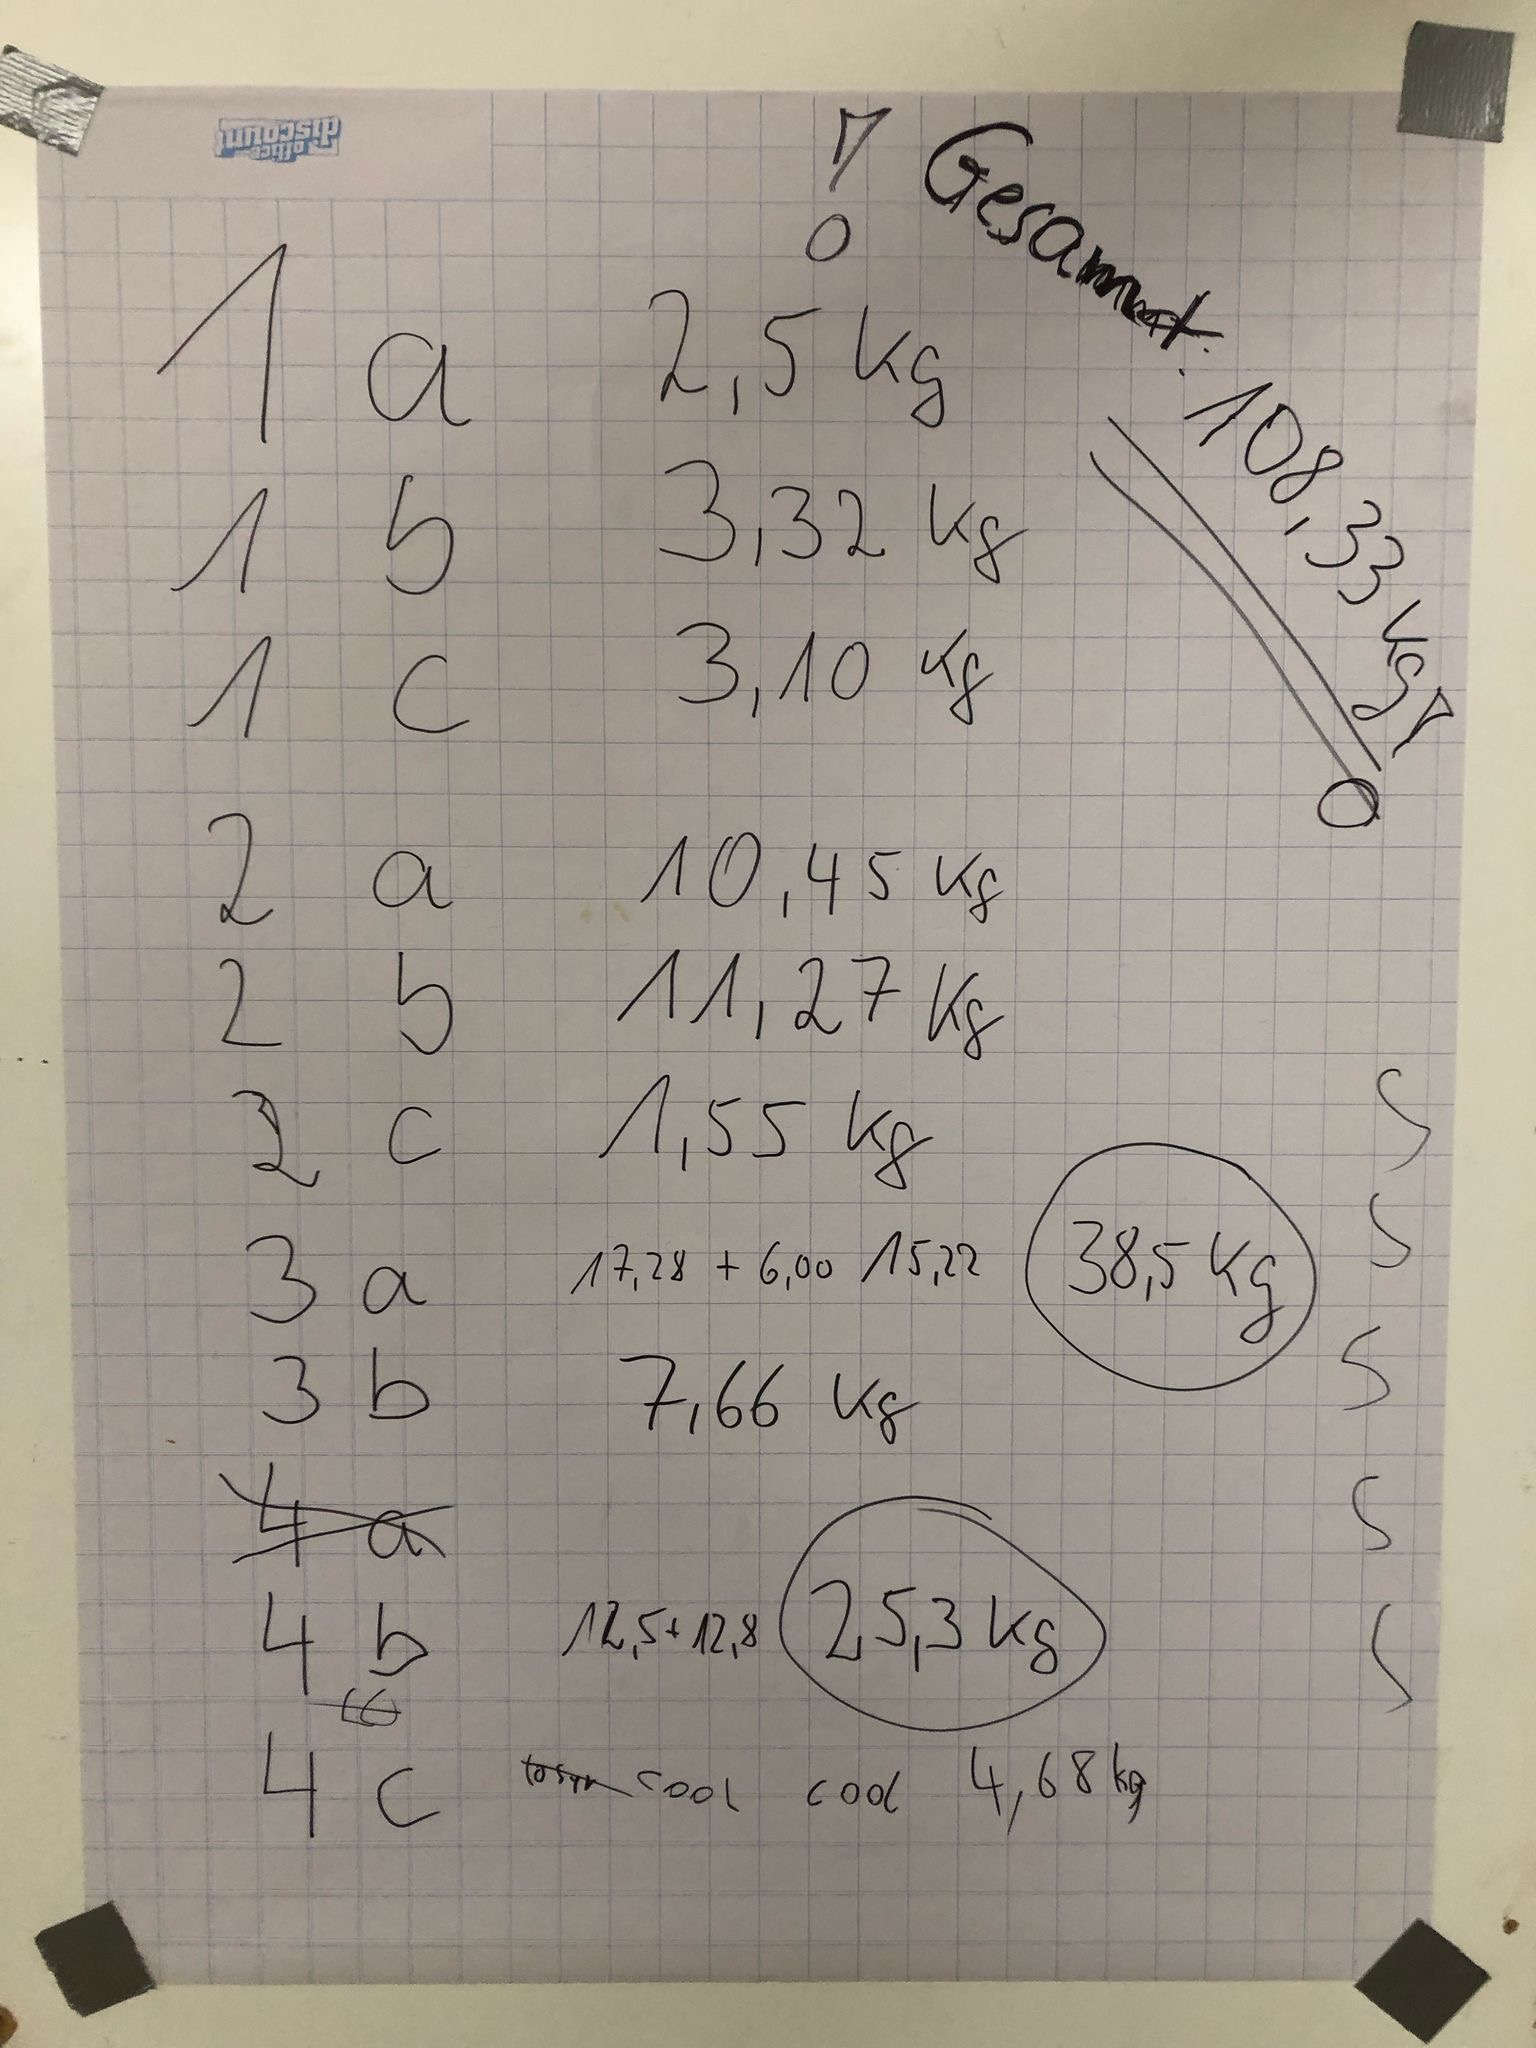 office
discount
! Gesammt: 108,33 kg!
1 a 2,5 kg
1 b 3,32 kg
1 c 3,10 kg
2 a 10,45 kg
2 b 11,27 kg
2 c 1,55 kg
3 a 17,28 + 6,00 15,22 38,5 kg
3 b 7,66 kg
4 a
4 b 12,5 + 12,8 25,3 kg
4 c cool cool 4,68 kg